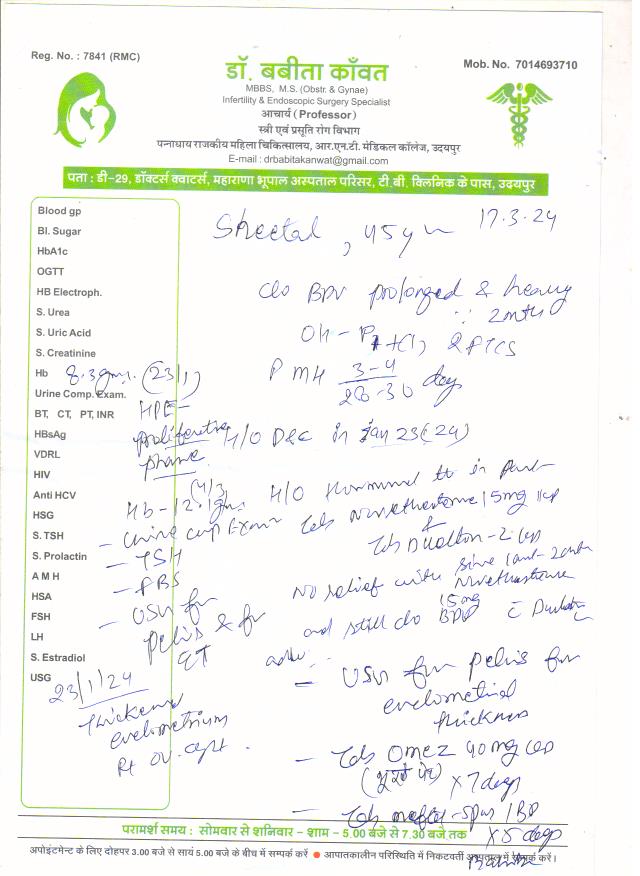 Reg. No. : 7841 (RMC)
Mob. No. 7014693710
डॉ. बबीता काँवत
MBBS, M.S. (Obstr. & Gynae)
Infertility & Endoscopic Surgery Specialist
आचार्य (Professor)
स्त्री एवं प्रसूति रोग विभाग
पन्नाधाय राजकीय महिला चिकित्सालय, आर.एन.टी. मेडिकल कॉलेज, उदयपुर
E-mail : drbabitakanwat@gmail.com
पता : डी-29, डॉक्टर्स क्वाटर्स, महाराणा भूपाल अस्पताल परिसर, टी.बी. क्लिनिक के पास, उदयपुर
Sheetal, 45 yr 17.3.24
Blood gp
Bl. Sugar
HbA1c
OGTT
HB Electroph.
S. Urea
S. Uric Acid
S. Creatinine
Hb 8.3 gm. (23/1)
Urine Comp. Exam.
BT, CT, PT, INR
HBsAg
VDRL
HIV
Anti HCV
HSG
S. TSH
S. Prolactin
A M H
HSA
FSH
LH
S. Estradiol
USG
HPE -
proliferative
phase
(4/3)
Hb - 12.1 gm
- Urine Exam
- TSH
- PBS
- USG for
pelvis & for
ET
23/1/24
thickened
endometrium
Rt ov. cyst.
c/o BPV prolonged & heavy
∵ 2 mth
OH - 2 PTCS
PMH 3-4
28-30 days
H/O D&C in Jan 23 (24)
H/O Hormonal tt in past
15mg
No relief with
15mg
and still c/o BPV
adv.
- USG for pelvis for
endometrial
thickness
- Tab Omez 40mg OD
x 7 days
- Tab meftal-spas 1 BD
x 5 days
परामर्श समय : सोमवार से शनिवार – शाम – 5.00 बजे से 7.30 बजे तक
अपोइंटमेन्ट के लिए दोहपर 3.00 बजे से सायं 5.00 बजे के बीच में सम्पर्क करें ● आपातकालीन परिस्थिति में निकटवर्ती अस्पताल में सम्पर्क करें।